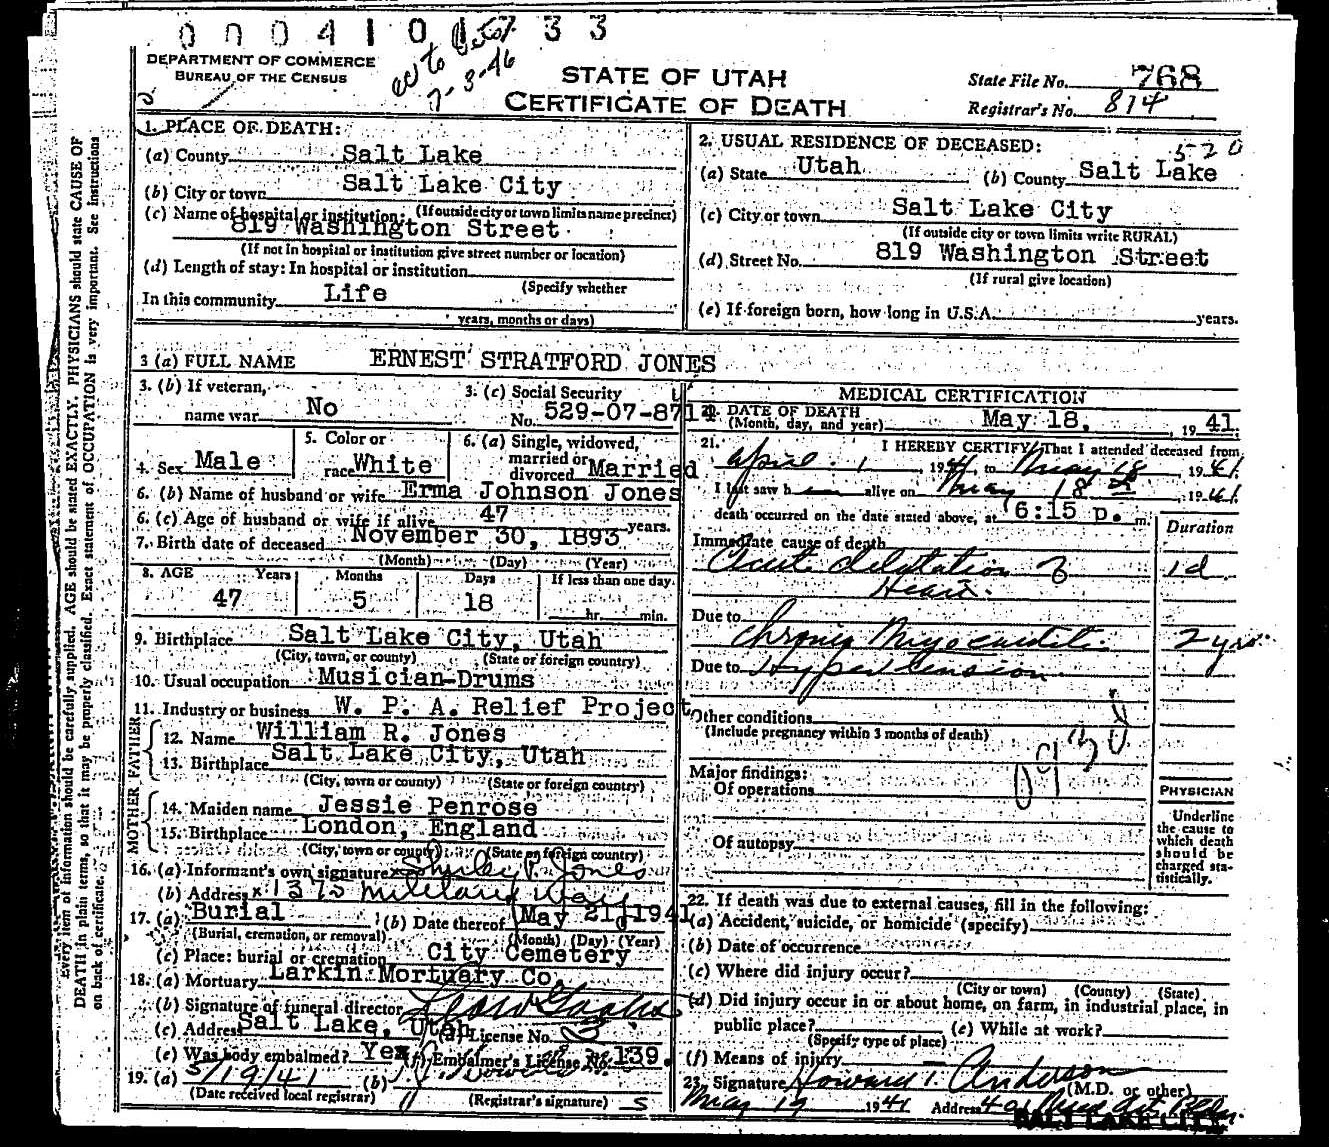 0004101733
cc to
7-3-46
DEPARTMENT OF COMMERCE
BUREAU OF THE CENSUS
STATE OF UTAH
CERTIFICATE OF DEATH
State File No. 768
Registrar's No. 814
1. PLACE OF DEATH:
(a) County Salt Lake
(b) City or town Salt Lake City
(If outside city or town limits name precinct)
(c) Name of hospital or institution: 819 Washington Street
(If not in hospital or institution give street number or location)
(d) Length of stay: In hospital or institution
(Specify whether
In this community Life
years, months or days)
2. USUAL RESIDENCE OF DECEASED: 520
(a) State Utah (b) County Salt Lake
(c) City or town Salt Lake City
(If outside city or town limits write RURAL)
(d) Street No. 819 Washington Street
(If rural give location)
(e) If foreign born, how long in U.S.A. years.
3 (a) FULL NAME ERNEST STRATFORD JONES
3. (b) If veteran, name war No
3. (c) Social Security No. 529-07-8714
4. Sex Male
5. Color or race White
6. (a) Single, widowed, married or divorced Married
6. (b) Name of husband or wife Erma Johnson Jones
6. (c) Age of husband or wife if alive 47 years.
7. Birth date of deceased November 30, 1893
(Month) (Day) (Year)
8. AGE Years Months Days If less than one day
47 5 18 hr. min.
9. Birthplace Salt Lake City, Utah
(City, town, or county) (State or foreign country)
10. Usual occupation Musician-Drums
11. Industry or business W. P. A. Relief Project
FATHER
12. Name William R. Jones
13. Birthplace Salt Lake City, Utah
(City, town or county) (State or foreign country)
MOTHER
14. Maiden name Jessie Penrose
15. Birthplace London, England
(City, town or county) (State or foreign country)
16. (a) Informant's own signature Shirley Jones
(b) Address x 1375 Military Way
17. (a) Burial (b) Date thereof May 21, 1941
(Burial, cremation, or removal) (Month) (Day) (Year)
(c) Place: burial or cremation City Cemetery
18. (a) Mortuary Larkin Mortuary Co
(b) Signature of funeral director
(c) Address Salt Lake, Utah (d) License No. 3
(e) Was body embalmed? Yes (f) Embalmer's License No. 139.
19. (a) 5/19/41 (b)
(Date received local registrar) (Registrar's signature) 5
MEDICAL CERTIFICATION
20. DATE OF DEATH May 18, 1941
(Month, day, and year)
21. I HEREBY CERTIFY, That I attended deceased from
April 1, 1941, to May 18 1941.
I last saw h alive on May 18 1941.
death occurred on the date stated above, at 6:15 p. m.
Duration
Immediate cause of death
Acute dilatation of 1d.
Heart.
Due to Chronic Myocarditis 2 yrs.
Due to Hypertension
Other conditions
(Include pregnancy within 3 months of death)
Major findings:
Of operations
Of autopsy
PHYSICIAN
Underline
the cause to
which death
should be
charged sta-
tistically.
22. If death was due to external causes, fill in the following:
(a) Accident, suicide, or homicide (specify)
(b) Date of occurrence
(c) Where did injury occur?
(City or town) (County) (State)
(d) Did injury occur in or about home, on farm, in industrial place, in
public place? (e) While at work?
(Specify type of place)
(f) Means of injury
23. Signature Howard T. Anderson
(M.D. or other)
May 19 1941 Address
SALT LAKE CITY
Every item of information should be carefully supplied. AGE should be stated EXACTLY. PHYSICIANS should state CAUSE OF
DEATH in plain terms, so that it may be properly classified. Exact statement of OCCUPATION is very important. See instructions
on back of certificate.